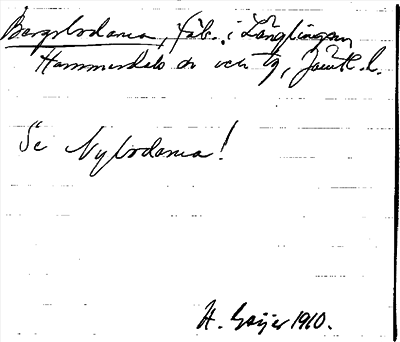 Bergsbodarna, fäb. i Långlingen
Hammerdals sn och tg, Jämtl. l.
Se Nybodarna!
H. Geijer 1910.